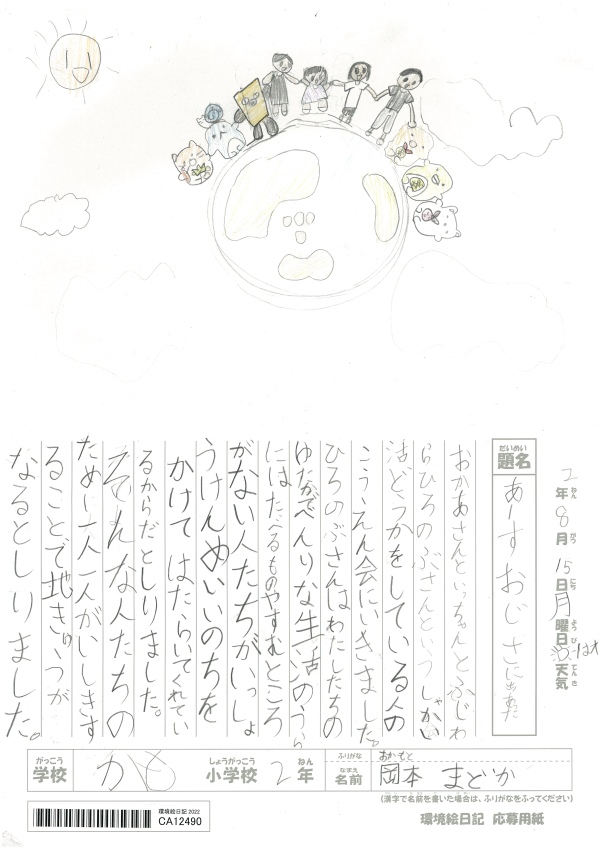 2年8月15日月曜日 天気 はれ
ねん がつ にち ようび てんき
だいめい
題名
あーすおじさんに出あった
おかあさんといっちゃんとふじわ
らひろのぶさんというしゃかい
活どうかをしている人の
こうえん会にいきました。
ひろのぶさんはわたしたちの
ゆたかでべんりな生活のうら
にはたべるものやすむところ
がない人たちがいっしょ
うけんめいいのちを
かけてはたらいてくれてい
るからだとしりました。
そんな人たちの
ために一人一人がいしきす
ることで地きゅうが
なるとしりました。
がっこう
学校
かも
しょうがっこう
小学校
2
ねん
年
ふりがな
おかもと
なまえ
名前
岡本 まどか
(漢字で名前を書いた場合は、ふりがなをふってください)
環境絵日記 2022
CA12490
環境絵日記 応募用紙